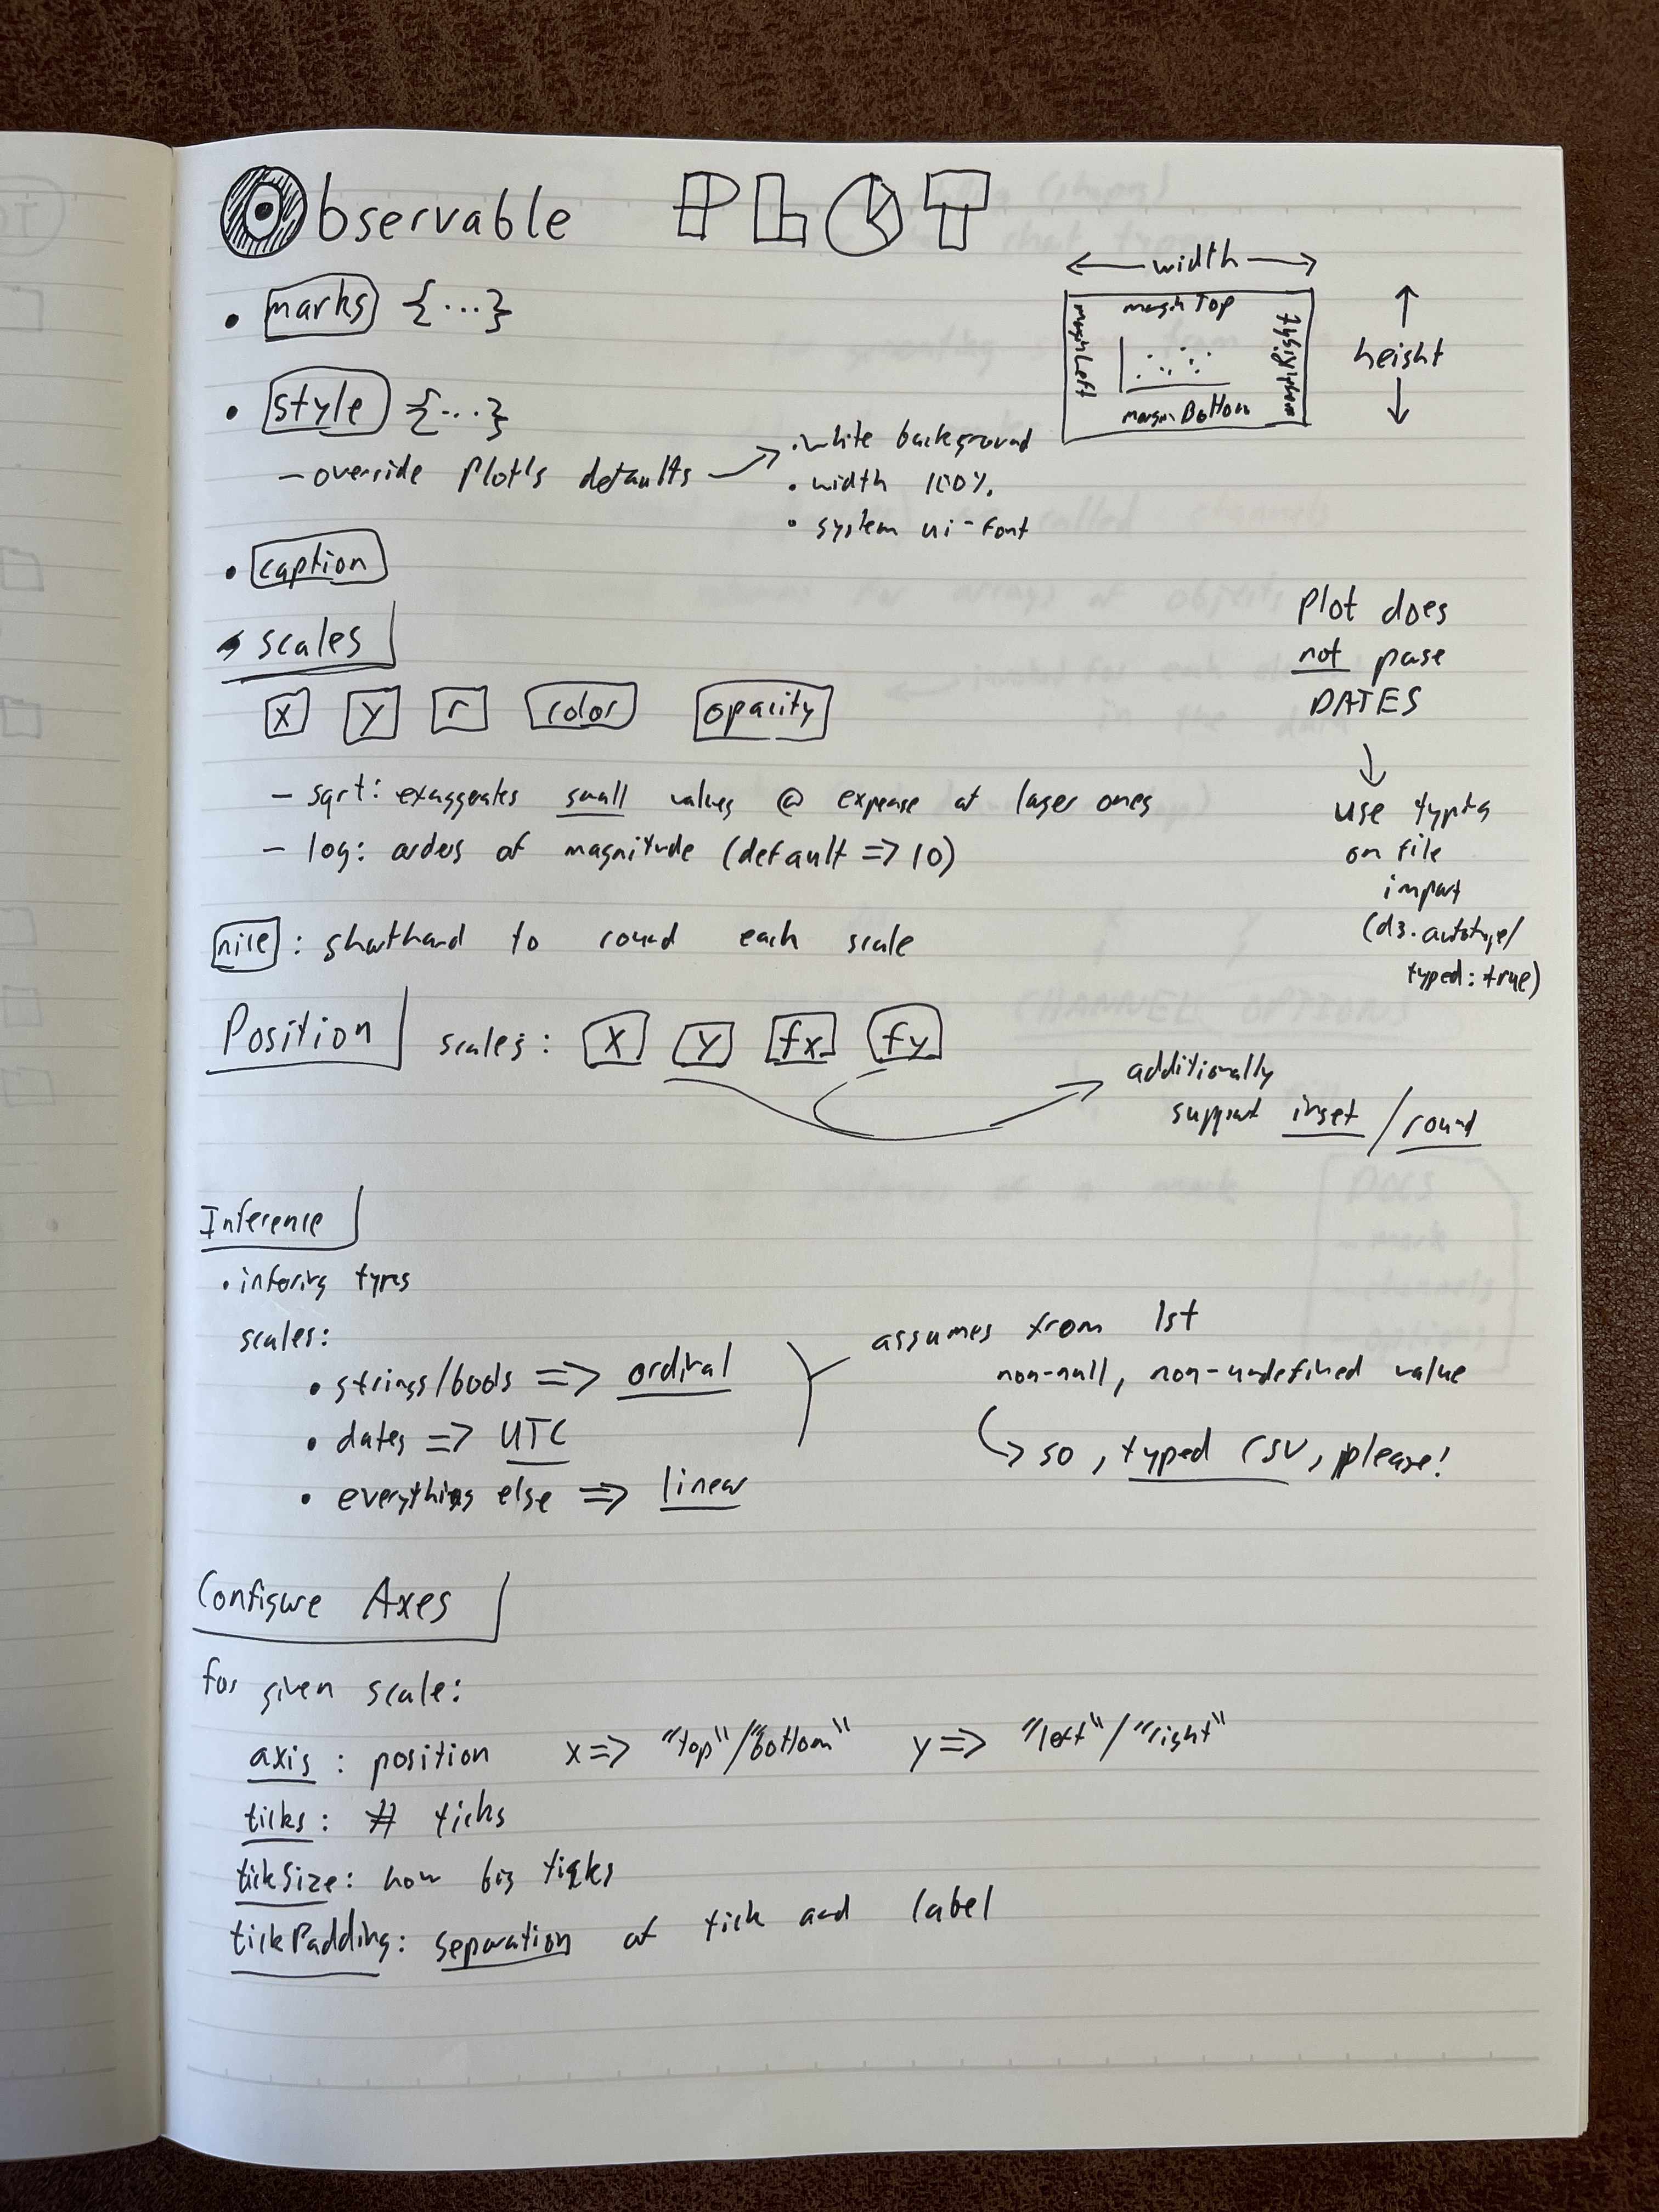 Observable PLOT
• marks {...}
• style {...}
– override Plot's defaults →
• white background
• width 100%
• system ui-font
← width →
margin Top
margin Left
margin Right
margin Bottom
↑
height
↓
• caption
• scales
x y r color opacity
– sqrt: exaggerates small values @ expense of larger ones
– log: orders of magnitude (default => 10)
nice : shorthand to round each scale
Plot does
not parse
DATES
↓
use typing
on file
import
(d3.autotype/
typed: true)
Position scales: x y fx fy
additionally
support inset / round
Inference
• inferring types
scales:
• strings/bools => ordinal
• dates => UTC
• everything else => linear
assumes from 1st
non-null, non-undefined value
↳ so, typed CSV, please!
Configure Axes
for given scale:
axis : position x => "top"/"bottom" y => "left"/"right"
ticks : # ticks
tickSize: how big ticks
tickPadding: separation of tick and label